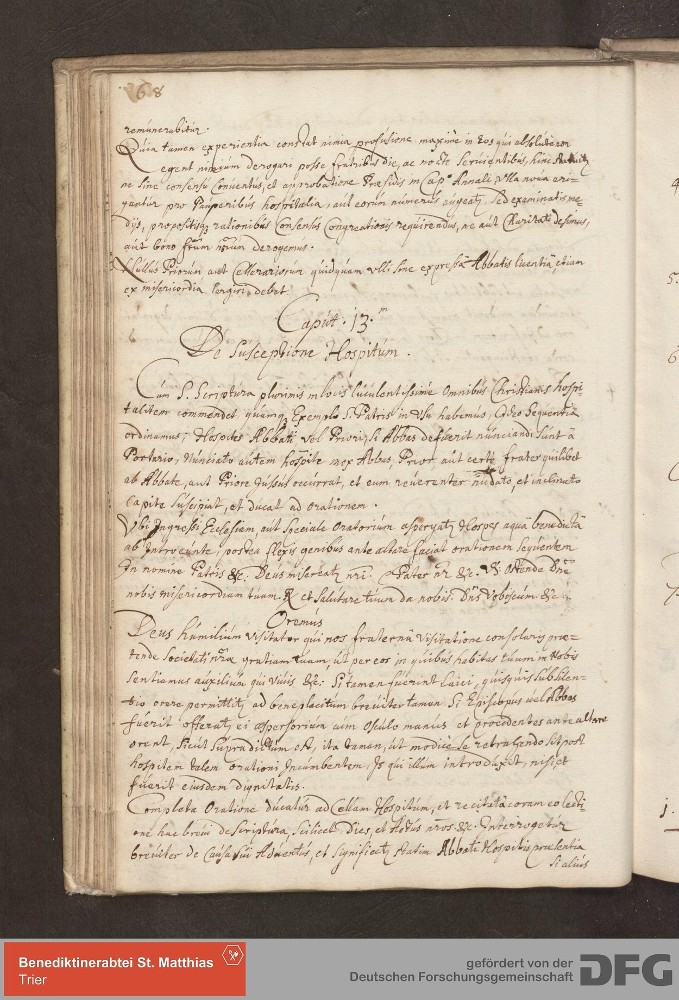 68
remunerabitur.
Quia tamen experientia constat nimia profusione maxime in eos qui absolute non
egent nimium derogari posse fratribus die, ac nocte servientibus, hinc statuitur
ne sine consensu Conventus, et approbatione Praesidis in Cap.o Annali ulla nova eri-
gantur pro Pauperibus hospitalia, aut eorum numerus augeatr, sed examinatis me-
dijs, propositisq; rationibus Consensus Congreationis requirendus, ne aut Charitati desimus,
aut bono frum nrum derogemus.
Nullus Priorum aut Cellerariorum quidquam ulli sine expressa Abbatis licentia, etiam
ex misericordia largiri debet.
Caput. 13.m
De Susceptione Hospitum.
Cum S. Scriptura plurimis in locis luculentissime omnibus Christianis hospi-
talitem commendet quamq; Exemplo S. Patris in usu habemus, Ideo sequentia
ordinamus; Hospites Abbati, vel Priori, si Abbas defuerit nunciandi sunt a
Portario, Nunciato autem hospite mox Abbas, Prior, aut certe frater quilibet
ab Abbate, aut Priore Jussus occurrat, et eum reverenter nudato, et inclinato
Capite suscipiat, et ducat ad orationem.
Ubi Ingressi Ecclesiam, aut speciale oratorium aspergatr Hospes aqua benedicta
ab Introeunte; postea flexis genibus ante altare faciat orationem sequentem
In nomine Patris &c. Deus misereatr nri. Pater nr &c. V. Ostende Dne
nobis misericordiam tuam. R et Salutare tuum da nobis. Dns Vobiscum &c.
Oremus
Deus humilium visitator qui nos fraterna visitatione consolaris prae-
tende Societati nrae gratiam tuam, ut per eos in quibus habitas tuum in Nobis
sentiamus auxilium qui vivis &c. Si tamen fuerint Laici, quisquis sub silen-
tio orare permittitr, ad beneplacitum breviter tamen. Si Episcopus vel Abbas
fuerit offeratr ei aspersorium cum osculo manus et procedentes ante altare
orent, sicut supradictum est, ita tamen, ut modice se retrahendo sit post
hospitem talem orationi Incumbentem, Is qui illum introduxit, nisi et
fuerit eiusdem dignitatis.
Completa Oratione ducatur ad Cellam Hospitum, et recitata coram eo lecti
one hac brevi de Scriptura, scilicet, Dies, et Actus nros &c. Interrogetur
breviter de Causa sui Adventus, et significetr statim Abbati Hospitis praesentia
si alius
Benediktinerabtei St. Matthias
Trier
gefördert von der
Deutschen Forschungsgemeinschaft
DFG